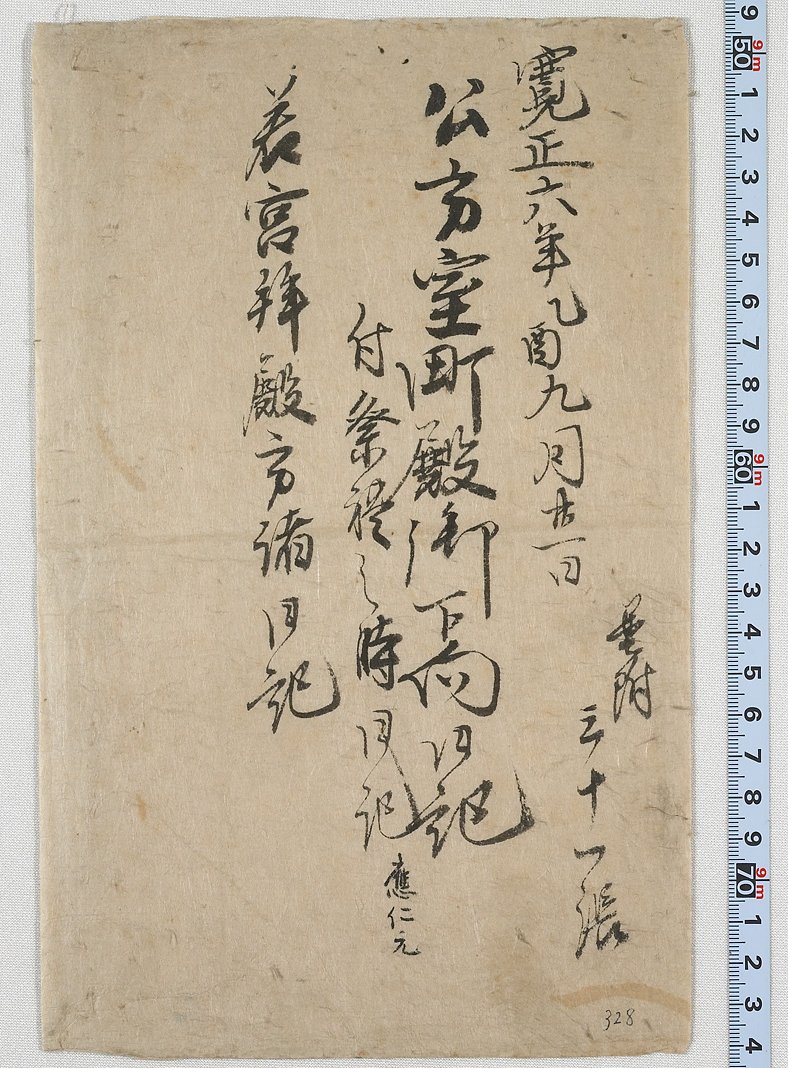 墨附
三十一張
寛正六年乙酉九月廿一日
公方室町殿御下向日記
付祭禮之時日記
應仁元
若宮拜殿方諸日記
328
9 50 9m 1 2 3 4 5 6 7 8 9 60 9m 1 2 3 4 5 6 7 8 9 70 9m 1 2 3 4